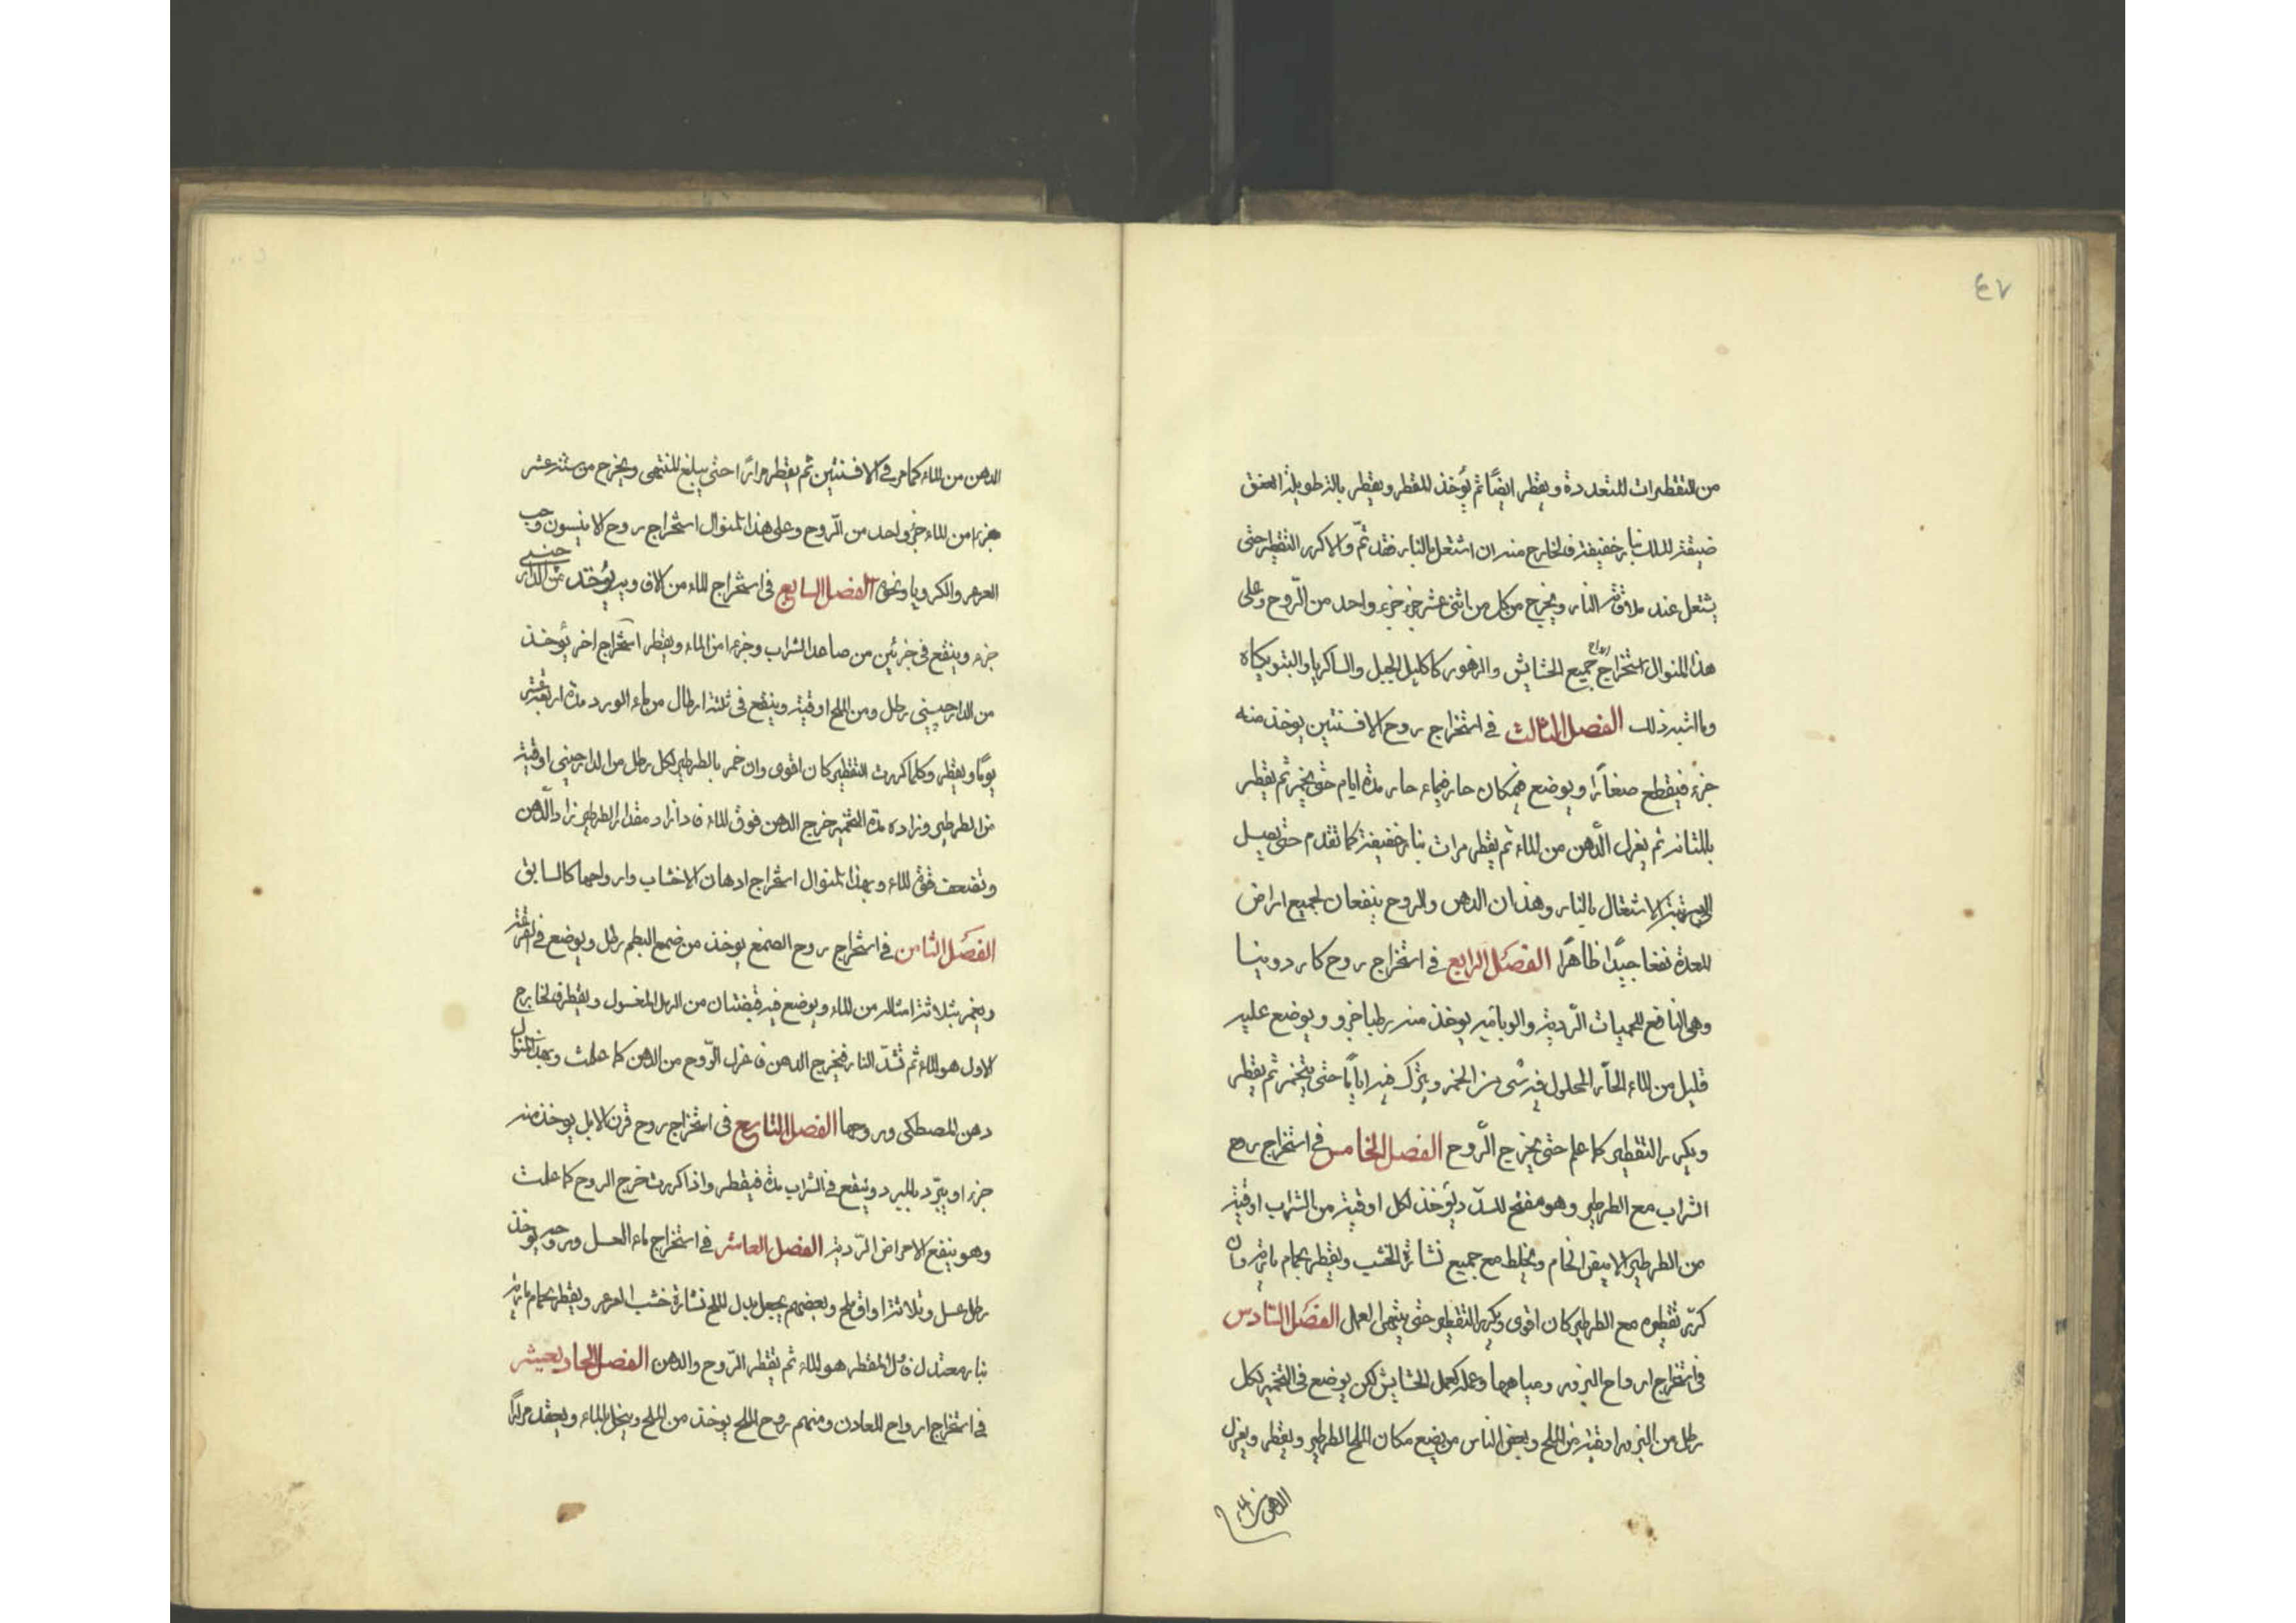 ٤٧
من التقطيرات المتعددة ويقطر ايضًا ثم يُؤخذ المقطر ويقطر بالة طويلة العنق
ضيقة المسلك بنار خفيفة فالخارج منه ان اشتعل بالنار فقد تمّ والا كرر التقطير حتى
يشتعل عند ملاقة النار ويخرج من كل من اثنى عشر جزء جزء واحد من الرّوح وعلى
هذا المنوال استخراج ارواح جميع الحشايش والزهور كاكليل الجبل والساكريا والبتونيكاه
وما اشبه ذلك الفصل الثالث في استخراج روح الافسنتين يوخذ منه
جزء فيقطع صغارًا ويوضع في مكان حار بماء حار مدة ايام حتى يخمر ثم يقطر
بالمثانه ثم يعزل الدّهن من الماء ثم يقطر مرات بنار خفيفة كما تقدم حتى يصل
الى مرتبة الاشتعال بالنار وهذان الدهن والروح ينفعان لجميع امراض
المعدة نفعا جيدًا ظاهرًا الفصل الرابع في استخراج روح كاردوبنا
وهى النافع للحميات الرّدية والوبائيه يوخذ منه رطبا جزو ويوضع عليه
قليل من الماء الحارّ المحلول فيه شى من الخمر ويترك فيه ايامًا حتى يتخمر ثم يقطر
ويكرر التقطير كما علم حتى يخرج الرّوح الفصل الخامس في استخراج روح
الشراب مع الطرطير وهو مفتح للسدد يُؤخذ لكل اوقية من الشراب اوقية
من الطرطير الابيض الخام ويخلط مع جميع نشارة الخشب ويقطر بحمام مارية وان
كرّر تقطيره مع الطرطير كان اقوى ويكرر التقطير حتى ينتهى العمل الفصل السادس
في استخراج ارواح البزور ومياهها وعمله كعمل الحشايش لكن يوضع فى التخمير لكل
رطل من البزور اوقية من الملح وبعض الناس من يضع مكان الملح الطرطير ويقطر ويعزل
الدهن من الماء
الدهن من الماء كما مر في الافسنتين ثم يقطر مرارًا حتى يبلغ المنتهى ويخرج من ستة عشر
جزءا من الماء جزؤ واحد من الرّوح وعلى هذا المنوال استخراج روح الانيسون وحب
العرعر والكرويا ونحوه الفصل السابع فى استخراج الماء من الافاويه يُؤخذ من الدار
صينى
جزء وينقع فى جزئين من صاعد الشراب وجزءا من الماء ويقطر استخراج اخر يُؤخذ
من الدارچينى رطل ومن الملح اوقية وينقع فى ثلثة ارطال من ماء الورد مدة اربعة عشر
يومًا ويقطر وكلما كررت التقطير كان اقوى وان خمر بالطرطير لكل رطل من الدارچينى اوقية
من الطرطير وزاده مدة التخمير خرج الدهن فوق الماء فاذا زاد مقدار الطرطير زاد الدّهن
وتضعف قوة الماء وبهذا المنوال استخراج ادهان الاخشاب وارواحها كالسابق
الفصل الثامن في استخراج روح الصمغ يوخذ من صمغ البطم رطل ويوضع في القرعة
ويغمر بثلاثة امثاله من الماء ويوضع فيه قبضتان من الرمل المغسول ويقطر فالخارج
الاول هو الماء ثم تشدّ النار فيخرج الدهن فاعزل الرّوح من الدهن كما علمت وبهذا المنوال
دهن المصطكى وروحها الفصل التاسع فى استخراج روح قرن الايل يوخذ منه
جزء او يبرّد بالمبرد وينقع في الشراب مدة فيقطر واذا كررت خرج الروح كما علمت
وهو ينفع الامراض الرّدية الفصل العاشر في استخراج ماء العسل وروحه يوخذ
رطل عسل وثلاثة اواق ملح وبعضهم يجعل بدل الملح نشارة خشب العرعر ويقطر بحمام مارية
بنار معتدل فاول المقطر هو الماء ثم يقطر الرّوح والدهن الفصل الحادى عشر
في استخراج ارواح المعادن ومنهم روح الملح يوخذ من الملح وينحل بالماء ويعقد مرارًا